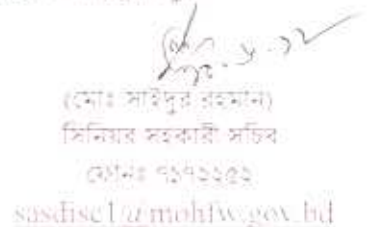 (মোঃ সাইদুর রহমান)
সিনিয়র সহকারী সচিব
ফোনঃ ৭১৭১২৫২
sasdisc1@mohfw.gov.bd